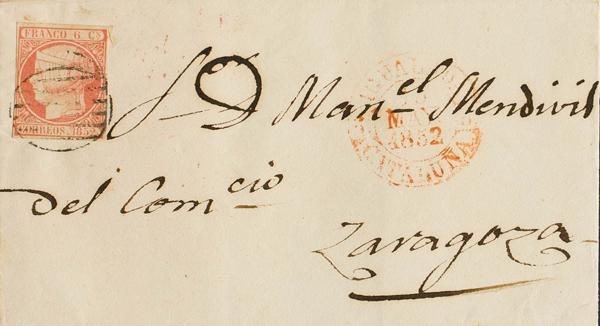 FRANCO 6 Cs
CORREOS. 1852
Sr D. Man.el Mendivil
MAY
1852
CATALUÑA
del Com.cio
Zaragoza